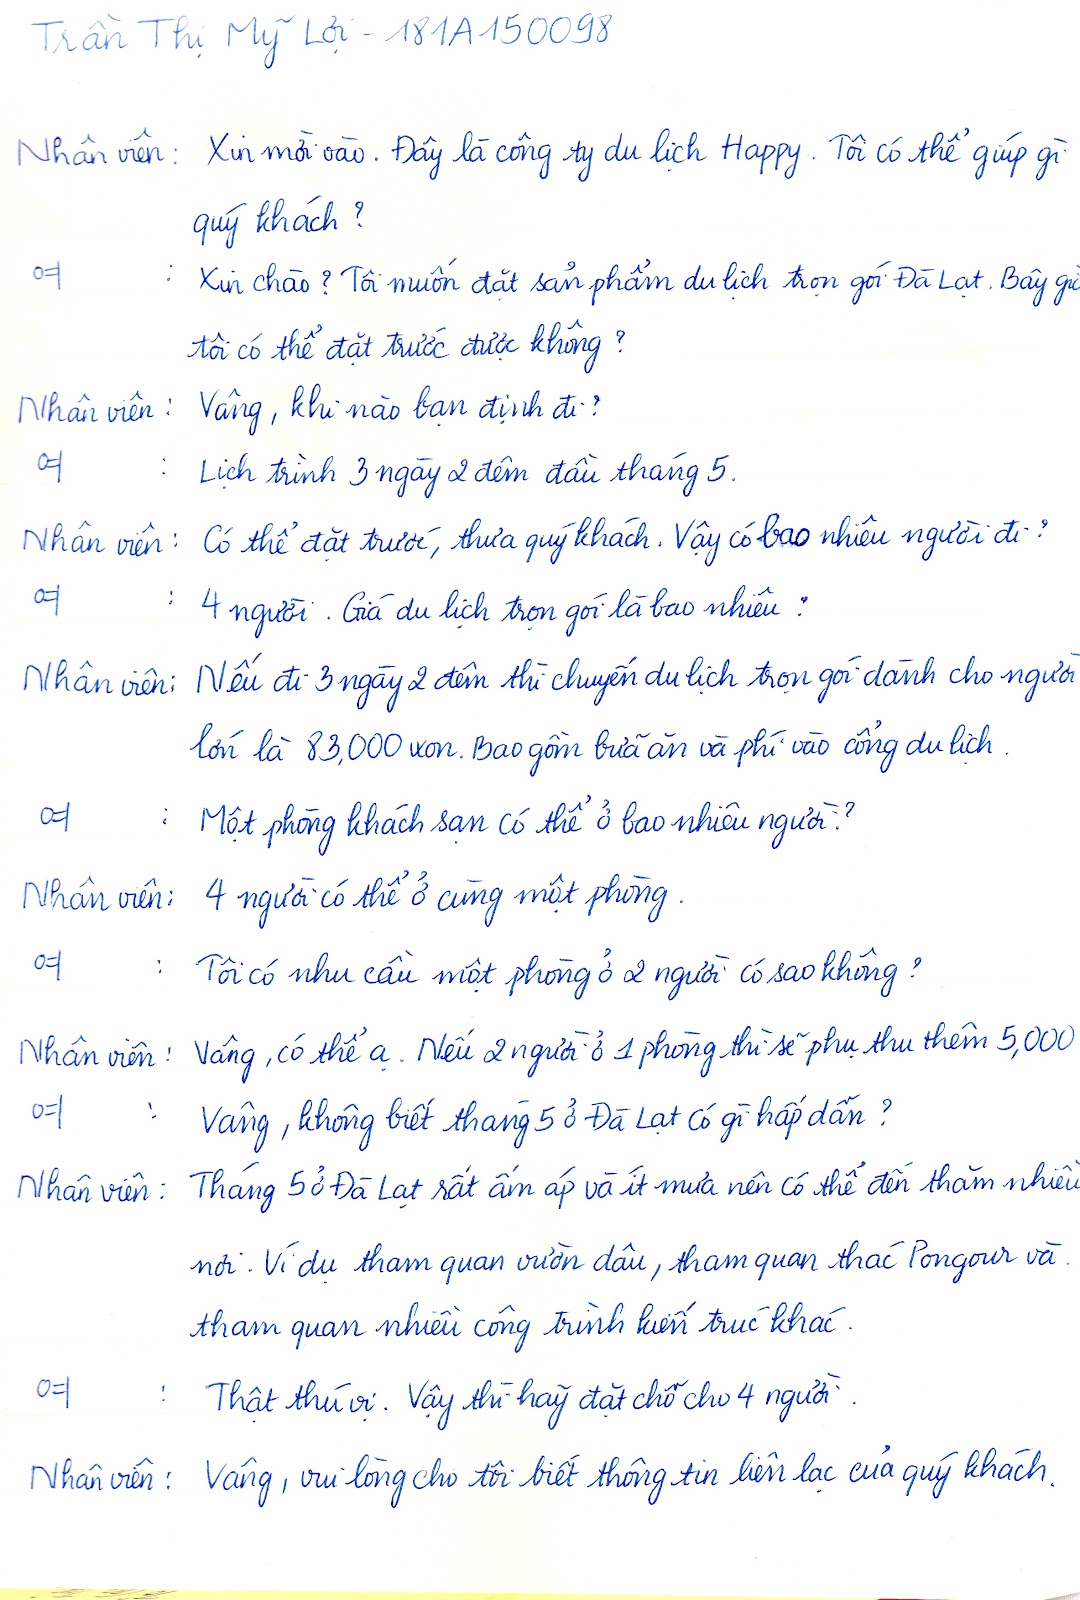 Trần Thị Mỹ Lợi - 181A150098
Nhân viên : Xin mời vào. Đây là công ty du lịch Happy. Tôi có thể giúp gì
quý khách ?
여 : Xin chào ? Tôi muốn đặt sản phẩm du lịch trọn gói Đà Lạt. Bây giờ
tôi có thể đặt trước được không ?
Nhân viên : Vâng, khi nào bạn định đi ?
여 : Lịch trình 3 ngày 2 đêm đầu tháng 5.
Nhân viên : Có thể đặt trước, thưa quý khách. Vậy có bao nhiêu người đi ?
여 : 4 người. Giá du lịch trọn gói là bao nhiêu ?
Nhân viên : Nếu đi 3 ngày 2 đêm thì chuyến du lịch trọn gói dành cho người
lớn là 83,000 won. Bao gồm bữa ăn và phí vào cổng du lịch.
여 : Một phòng khách sạn có thể ở bao nhiêu người ?
Nhân viên : 4 người có thể ở cùng một phòng.
여 : Tôi có nhu cầu một phòng ở 2 người có sao không ?
Nhân viên : Vâng, có thể ạ. Nếu 2 người ở 1 phòng thì sẽ phụ thu thêm 5,000
여 : Vâng, không biết tháng 5 ở Đà Lạt có gì hấp dẫn ?
Nhân viên : Tháng 5 ở Đà Lạt rất ấm áp và ít mưa nên có thể đến thăm nhiều
nơi. Ví dụ tham quan vườn dâu, tham quan thác Pongour và
tham quan nhiều công trình kiến trúc khác.
여 : Thật thú vị. Vậy thì hãy đặt chỗ cho 4 người.
Nhân viên : Vâng, vui lòng cho tôi biết thông tin liên lạc của quý khách.